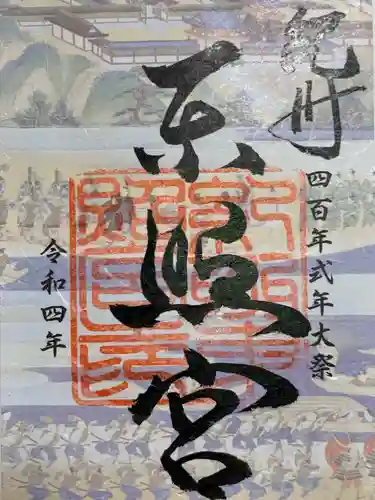 紀州
四百年式年大祭
東照宮
令和四年